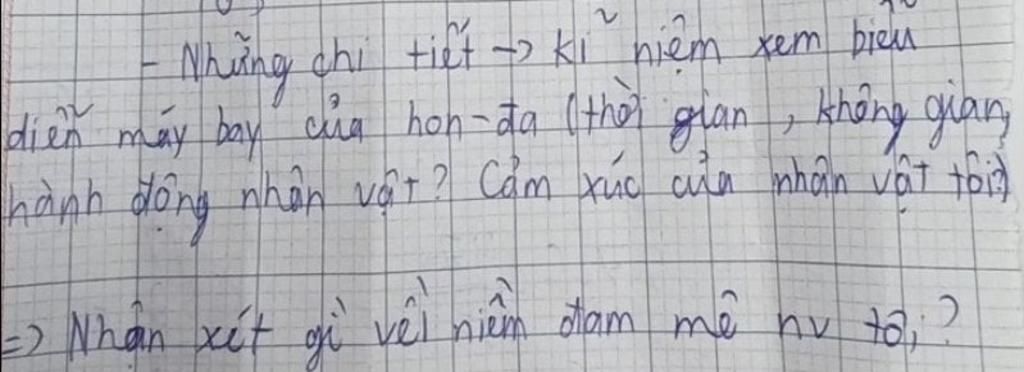 - Những chi tiết -> kỉ niệm xem biểu
diễn máy bay của hon-đa (thời gian, không gian,
hành động nhân vật? Cảm xúc của nhân vật tôi?)
=> Nhận xét gì về niềm đam mê nv tôi?